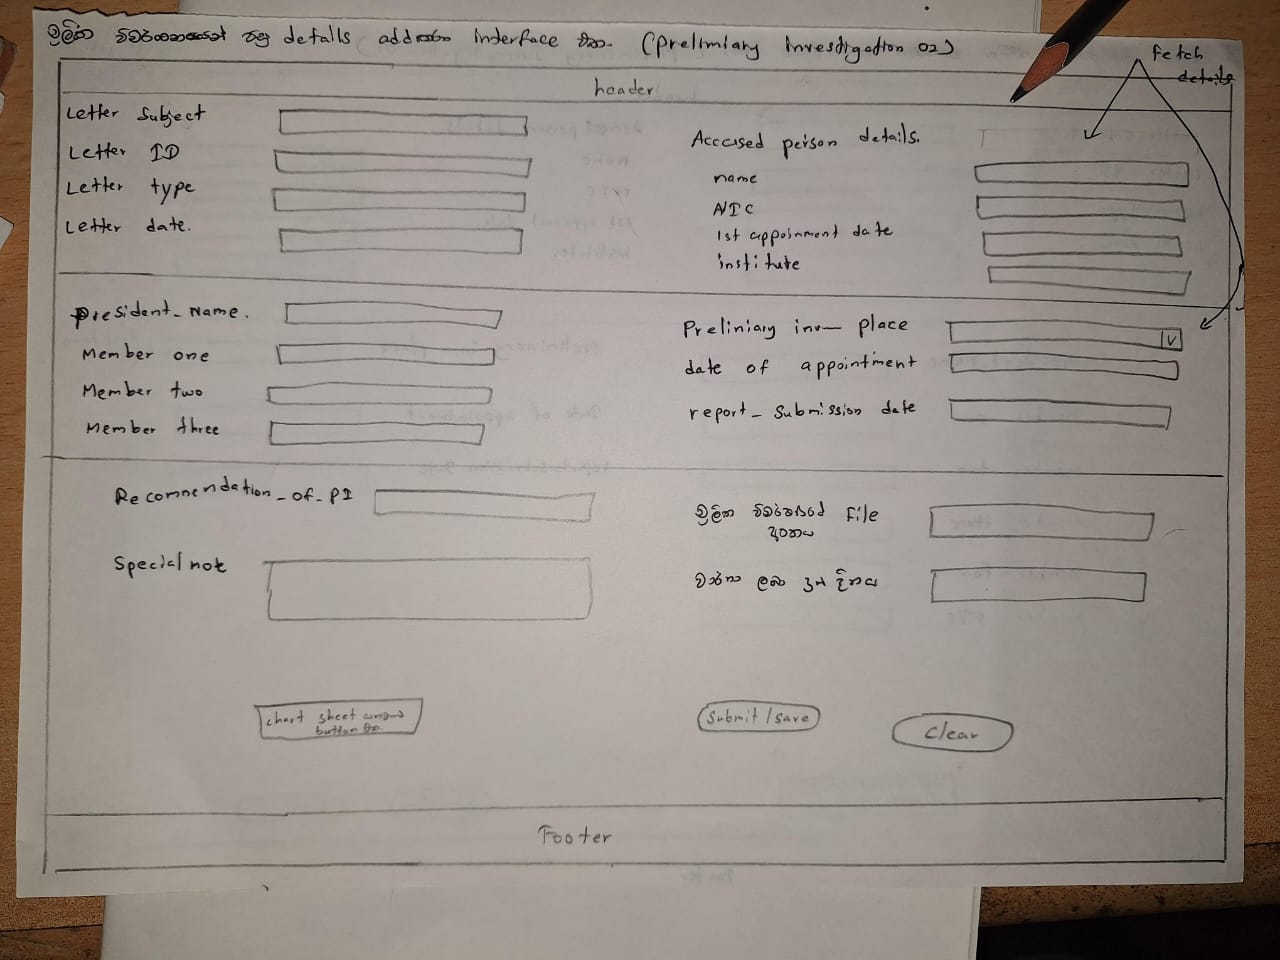 මූලික විමර්ශනයෙන් පසු details add කරන interface එක. (prelimiary investigation 02)
fetch details
header
Letter Subject
Letter ID
Letter type
Letter date.
Accused person details.
name
NIC
1st appoinment date
institute
president_Name.
Member one
Member two
Member three
Preliniary inv— place
date of appointment
report_submission date
Recomnendation_of_PI
Special note
මූලික විමර්ශනයේ File අංකය
වාර්තා ලබා දුන් දිනය
chart sheet button එක
Submit/save
Clear
Footer